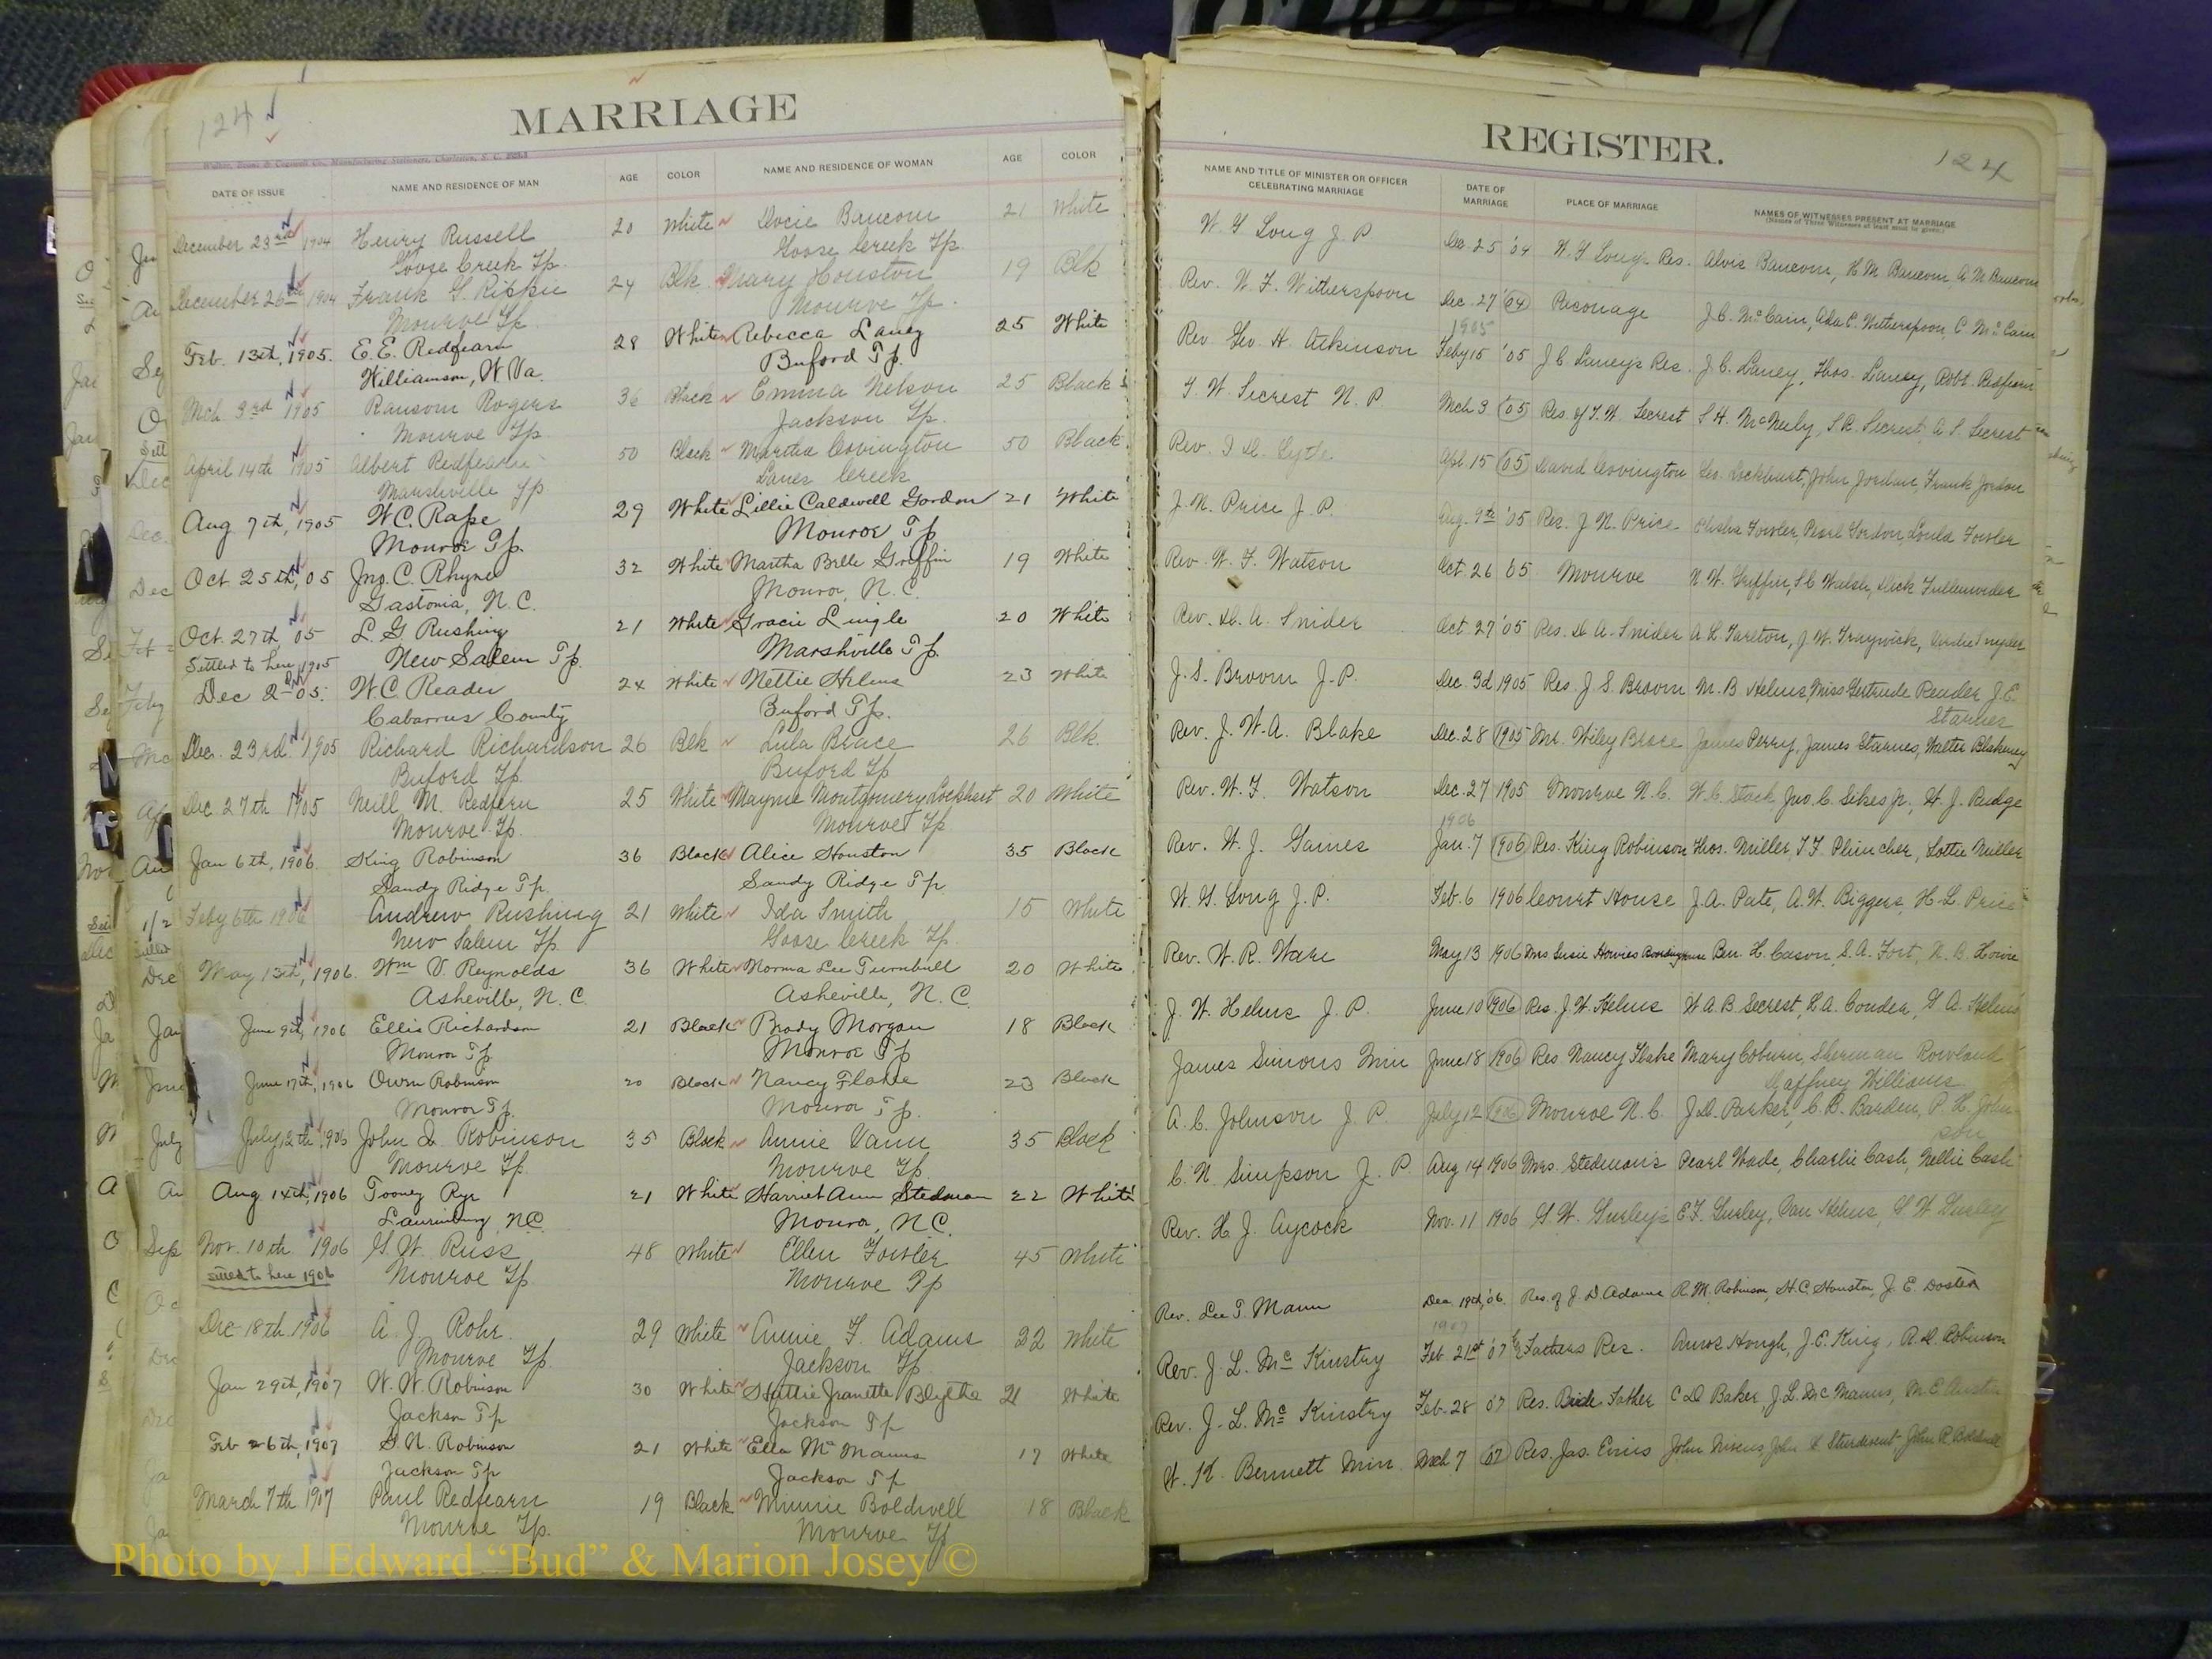 124
MARRIAGE
DATE OF ISSUE NAME AND RESIDENCE OF MAN AGE COLOR NAME AND RESIDENCE OF WOMAN AGE COLOR
December 23rd 1904 Henry Russell 20 White Docie Baucom 21 White
Goose Creek Tp. Goose Creek Tp.
December 26th 1904 Frank G. 24 Blk Mary Houston 19 Blk
Monroe Tp. Monroe Tp.
Feb. 13th, 1905. E.E. Redfearn 28 White Rebecca Laney 25 White
Williamson, W Va. Buford Tp.
Mch 3rd 1905 Ransom Rogers 36 Black Emma Nelson 25 Black
Monroe Tp. Jackson Tp.
April 14th 1905 Albert Redfearn 50 Black Martha Covington 50 Black
Marshville Tp Lanes Creek
Aug 7th, 1905 W.C. Rape 29 White Lillie Caldwell Gordon 21 White
Monroe Tp. Monroe Tp
Oct 25th, 05 Jno. C. Rhyne 32 White Martha Belle Griffin 19 White
Gastonia, N.C. Monroe, N.C.
Oct. 27th, 05 L. G Rushing 21 White Gracie Lingle 20 White
Settled to here, 1905 New Salem Tp. Marshville Tp.
Dec 2nd 05. W.C. Reader 24 White Nettie Helms 23 White
Cabarrus County Buford Tp.
Dec. 23rd 1905 Richard Richardson 26 Blk Lula Bruce 26 Blk.
Buford Tp. Buford Tp
Dec 27th 1905 Neill M. Redfern 25 White Mayme Montgomery Lockhart 20 White
Monroe Tp. Monroe Tp
Jan 6th, 1906 King Robinson 36 Black Alice Houston 35 Black
Sandy Ridge Tp. Sandy Ridge Tp
Feby 6th 1906 Andrew Rushing 21 White Ida Smith 15 White
New Salem Tp. Goose Creek Tp.
May 13th, 1906. Wm V. Reynolds 36 White Norma Lee Turnbull 20 White
Asheville, N.C. Asheville, N.C.
June 9th, 1906 Ellis Richardson 21 Black Brady Morgan 18 Black
Monroe Tp. Monroe Tp
June 17th, 1906 Owen Robinson 20 Black Nancy Flake 23 Black
Monroe Tp. Monroe Tp.
July 12th 1906 John D. Robinson 35 Black Annie Vann 35 Black
Monroe Tp. Monroe Tp.
Aug 14th, 1906 Tooney Rye 21 White Harriet Ann Stedman 22 White
Laurinburg, N.C. Monroe, N.C.
Nov. 10th 1906 G.W. Russ 48 White Ellen Fowler 45 White
Settled to here 1906 Monroe Tp. Monroe Tp
Dec 18th 1906 A. J. Rohr. 29 White Annie F. Adams 22 White
Monroe Tp. Jackson Tp
Jan 29th, 1907 W. W. Robinson 30 White Hattie Jeanette Blythe 21 White
Jackson Tp Jackson Tp
Feb 26th, 1907 S. N. Robinson 21 White Ella McManus 17 White
Jackson Tp Jackson Tp
March 7th 1907 Paul Redfearn 19 Black Minnie Boldwell 18 Black
Monroe Tp. Monroe Tp
REGISTER.
124
NAME AND TITLE OF MINISTER OR OFFICER CELEBRATING MARRIAGE DATE OF MARRIAGE PLACE OF MARRIAGE NAMES OF WITNESSES PRESENT AT MARRIAGE
(Names of Three Witnesses at least must be given.)
W. G Long J. P Dec. 25 '04 W. G Long's Res. Alvis Baucom, H M Baucom, A. M Baucom
Rev. W. F. Witherspoon Dec. 27 '04 J. C. McCain, Ada C. Witherspoon, C McCain
1905
Rev Geo. H. Atkinson Feby 15 '05 J C Laney's Res. J. C. Laney, Thos. Laney, Robt. Redfearn
T. W. Secrest N. P Mch 3 '05 Res. of T. W. Secrest S H. McNeely, S R. Secrest, A. S. Secrest
Rev. I D. Lytle Apl. 15 05 David Covington Geo. Lockhart, John Jordan, Frank Jordon
J. N. Price J. P. Aug. 9th '05 Res. J N. Price Elisha Fowler, Pearl Gordon, Fowler
Rev. W. F. Watson Oct. 26 05 Monroe N. W. Griffin, Walsh, Dick Fullenwider
Rev. D. A. Snider Oct 27 '05 Res. D A. Snider A. K. Tarleton, J. W. Traywick, Snyder
J. S. Broom J. P. Dec. 3d 1905 Res. J S. Broom M. B Helms, Miss Gertrude Reader, J. E. Starnes
Rev. J. W. A. Blake Dec. 28 1905 Mr. Wiley Bruce James Perry, James Starnes, Walter Blakeney
Rev. W. F. Watson Dec. 27 1905 Monroe N. C. W. C. Stack, Jno. C. Sikes Jr., H. J. Rudge
1906
Rev. W. J. Gaines Jan. 7 1906 Res. King Robinson Thos. Miller, T F. Plincher, Lottie Miller
W. G. Long J. P. Feb. 6 1906 Court House J. A. Pate, A. W. Biggers, H. L. Price
Rev. W. R. Ware May 13 1906 Mrs Susie Howies Boardinghouse Ben. H. Cason, S. A. Fort, N. B. Howie
J. W. Helms J. P. June 10 1906 Res. J. W. Helms W. A. B Secrest, L. A. Conder, A. Helms
James Simons Min June 18 1906 Res Nancy Flake Mary Coburn, Sherman Rowland
Gaffney Williams
A. C. Johnson J. P July 12 1906 Monroe N. C. J. D. Parker, C. B. Barden, P. H. John-
son
C. N. Simpson J. P. Aug 14 1906 Mrs. Stedman's Pearl Wade, Charlie Cash, Nellie Cash
Rev. H. J. Aycock Nov. 11 1906 G. W. Gurley's E. F. Gurley, Van Helms, G. W. Gurley
Rev. Lee T Mann Dec 19th, '06. Res. of J D Adams R. M. Robinson, H. C. Houston, J. E. Doster
1907
Rev. J. L. McKinstry Feb. 21st '07 Fathers Res. Amos Hough, J. E. King, R. D. Robinson
Rev. J. L. McKinstry Feb. 28 07 Res. Bride Father C D Baker, J. L. McManus, M. C. Austin
W. K. Bennett Min Mch 7 07 Res. Jas. Ennis John Nivens, John Sturdivant, John R. Boldwell
Photo by J Edward "Bud" & Marion Josey ©